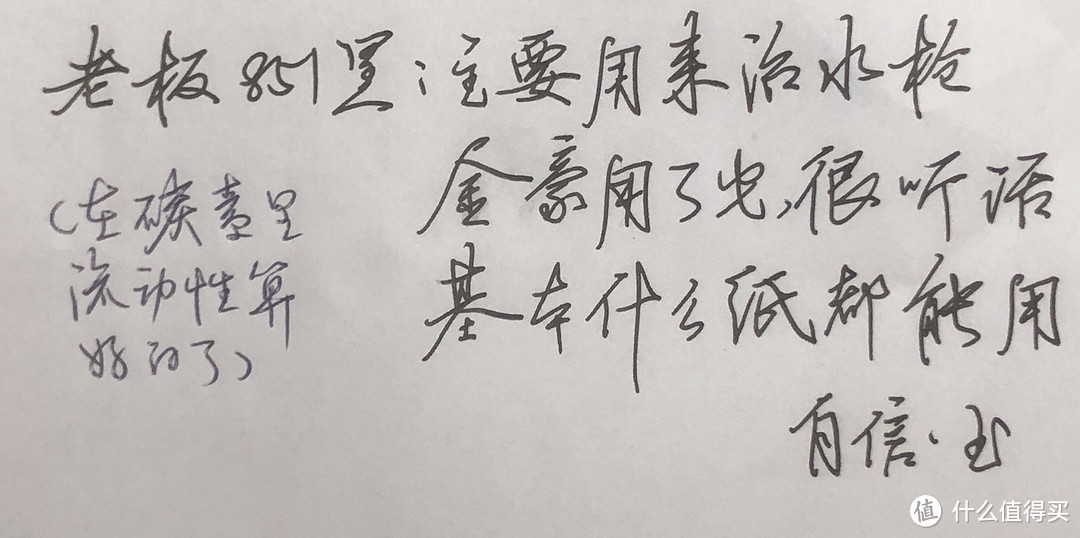 老板851黑:主要用来治水枪
金豪用了也很听话
基本什么纸都能用
(在碳素里
流动性算
好的了)
自信·玉
值 什么值得买